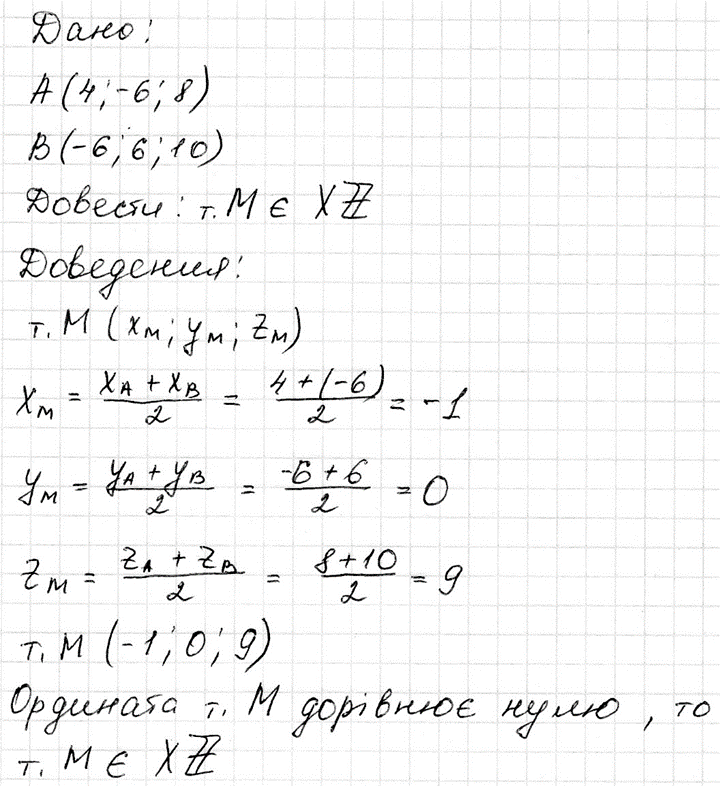 Дано:
A (4; -6; 8)
B (-6; 6; 10)
Довести: т. M є XZ
Доведення:
т. M (xм; yм; zм)
xм = (xA + xB)/2 = (4 + (-6))/2 = -1
yм = (yA + yB)/2 = (-6 + 6)/2 = 0
zм = (zA + zB)/2 = (8 + 10)/2 = 9
т. M (-1; 0; 9)
Ордината т. M дорівнює нулю, то
т. M є XZ